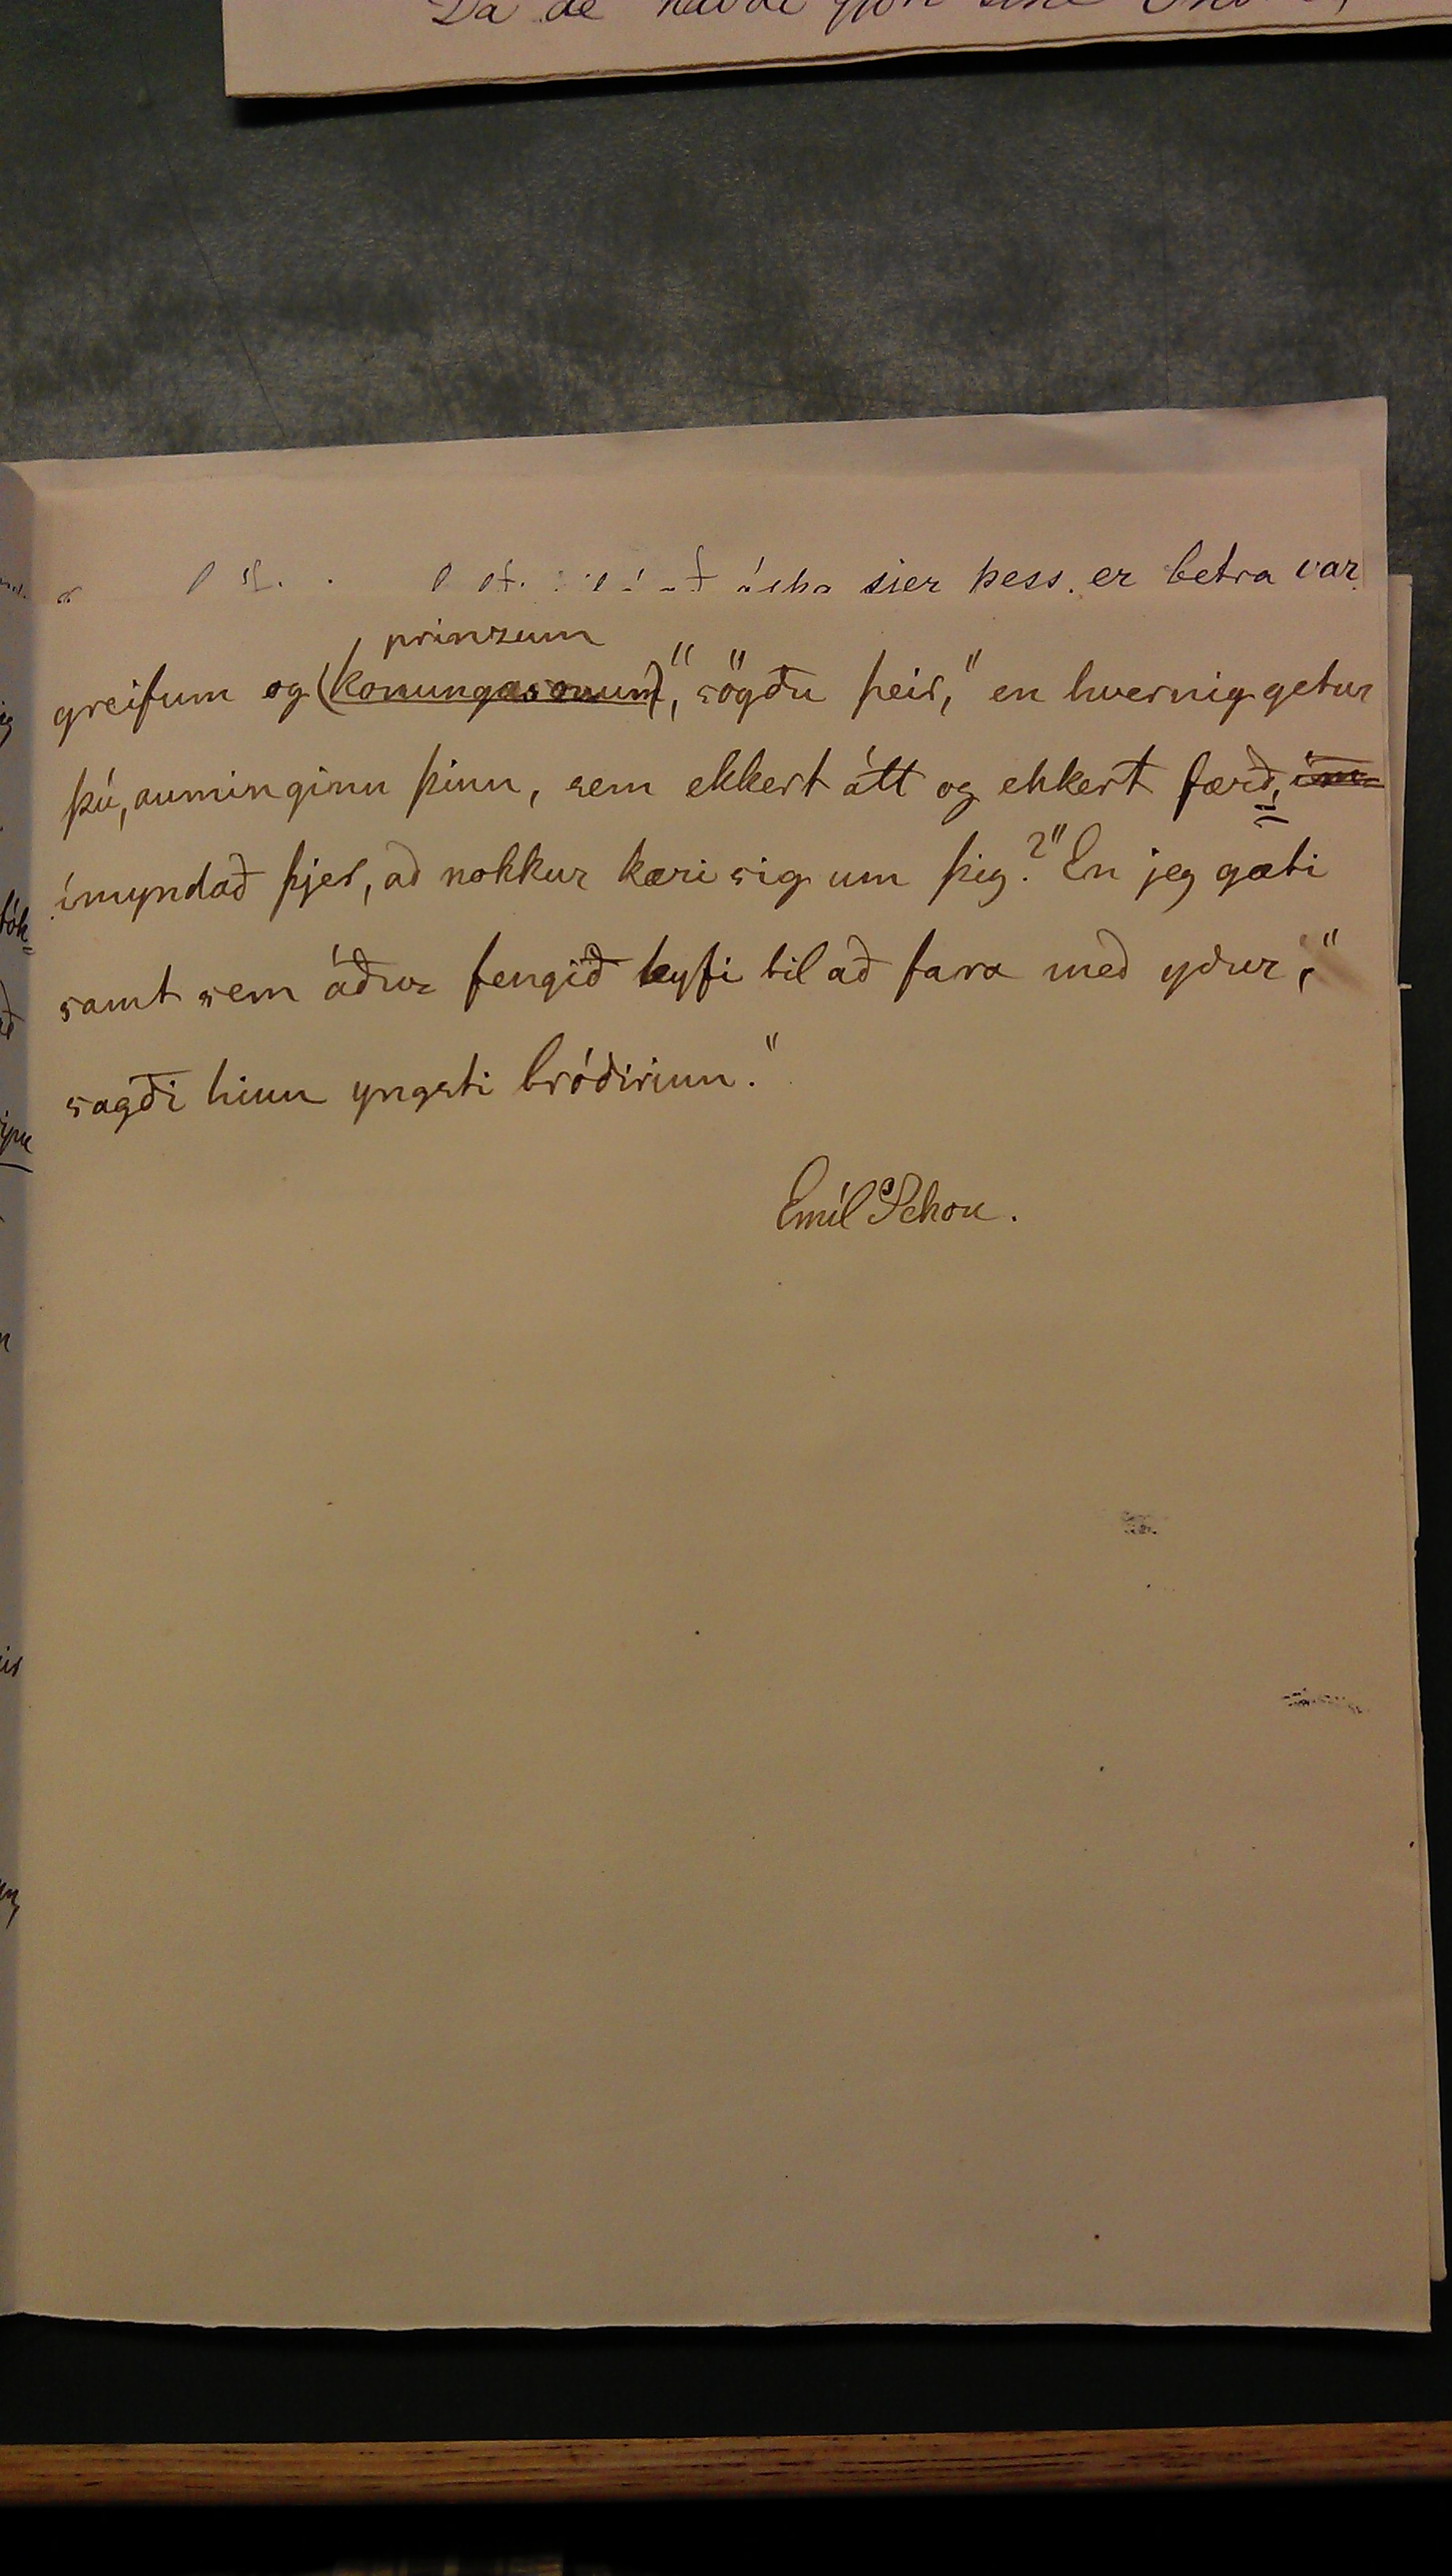 Da de havde
sier þess er betra var
prinzum
greifum og (konungasonum)," sögðu þeir," en hvernig getur
þú, auminginn þinn, sem ekkert átt og ekkert færð,
ímyndað þjer, að nokkur kæri sig um þig?" En jeg gæti
samt sem áður fengið leyfi til að fara með yður,"
sagði hinn yngsti bróðirinn."
Emíl Schou.